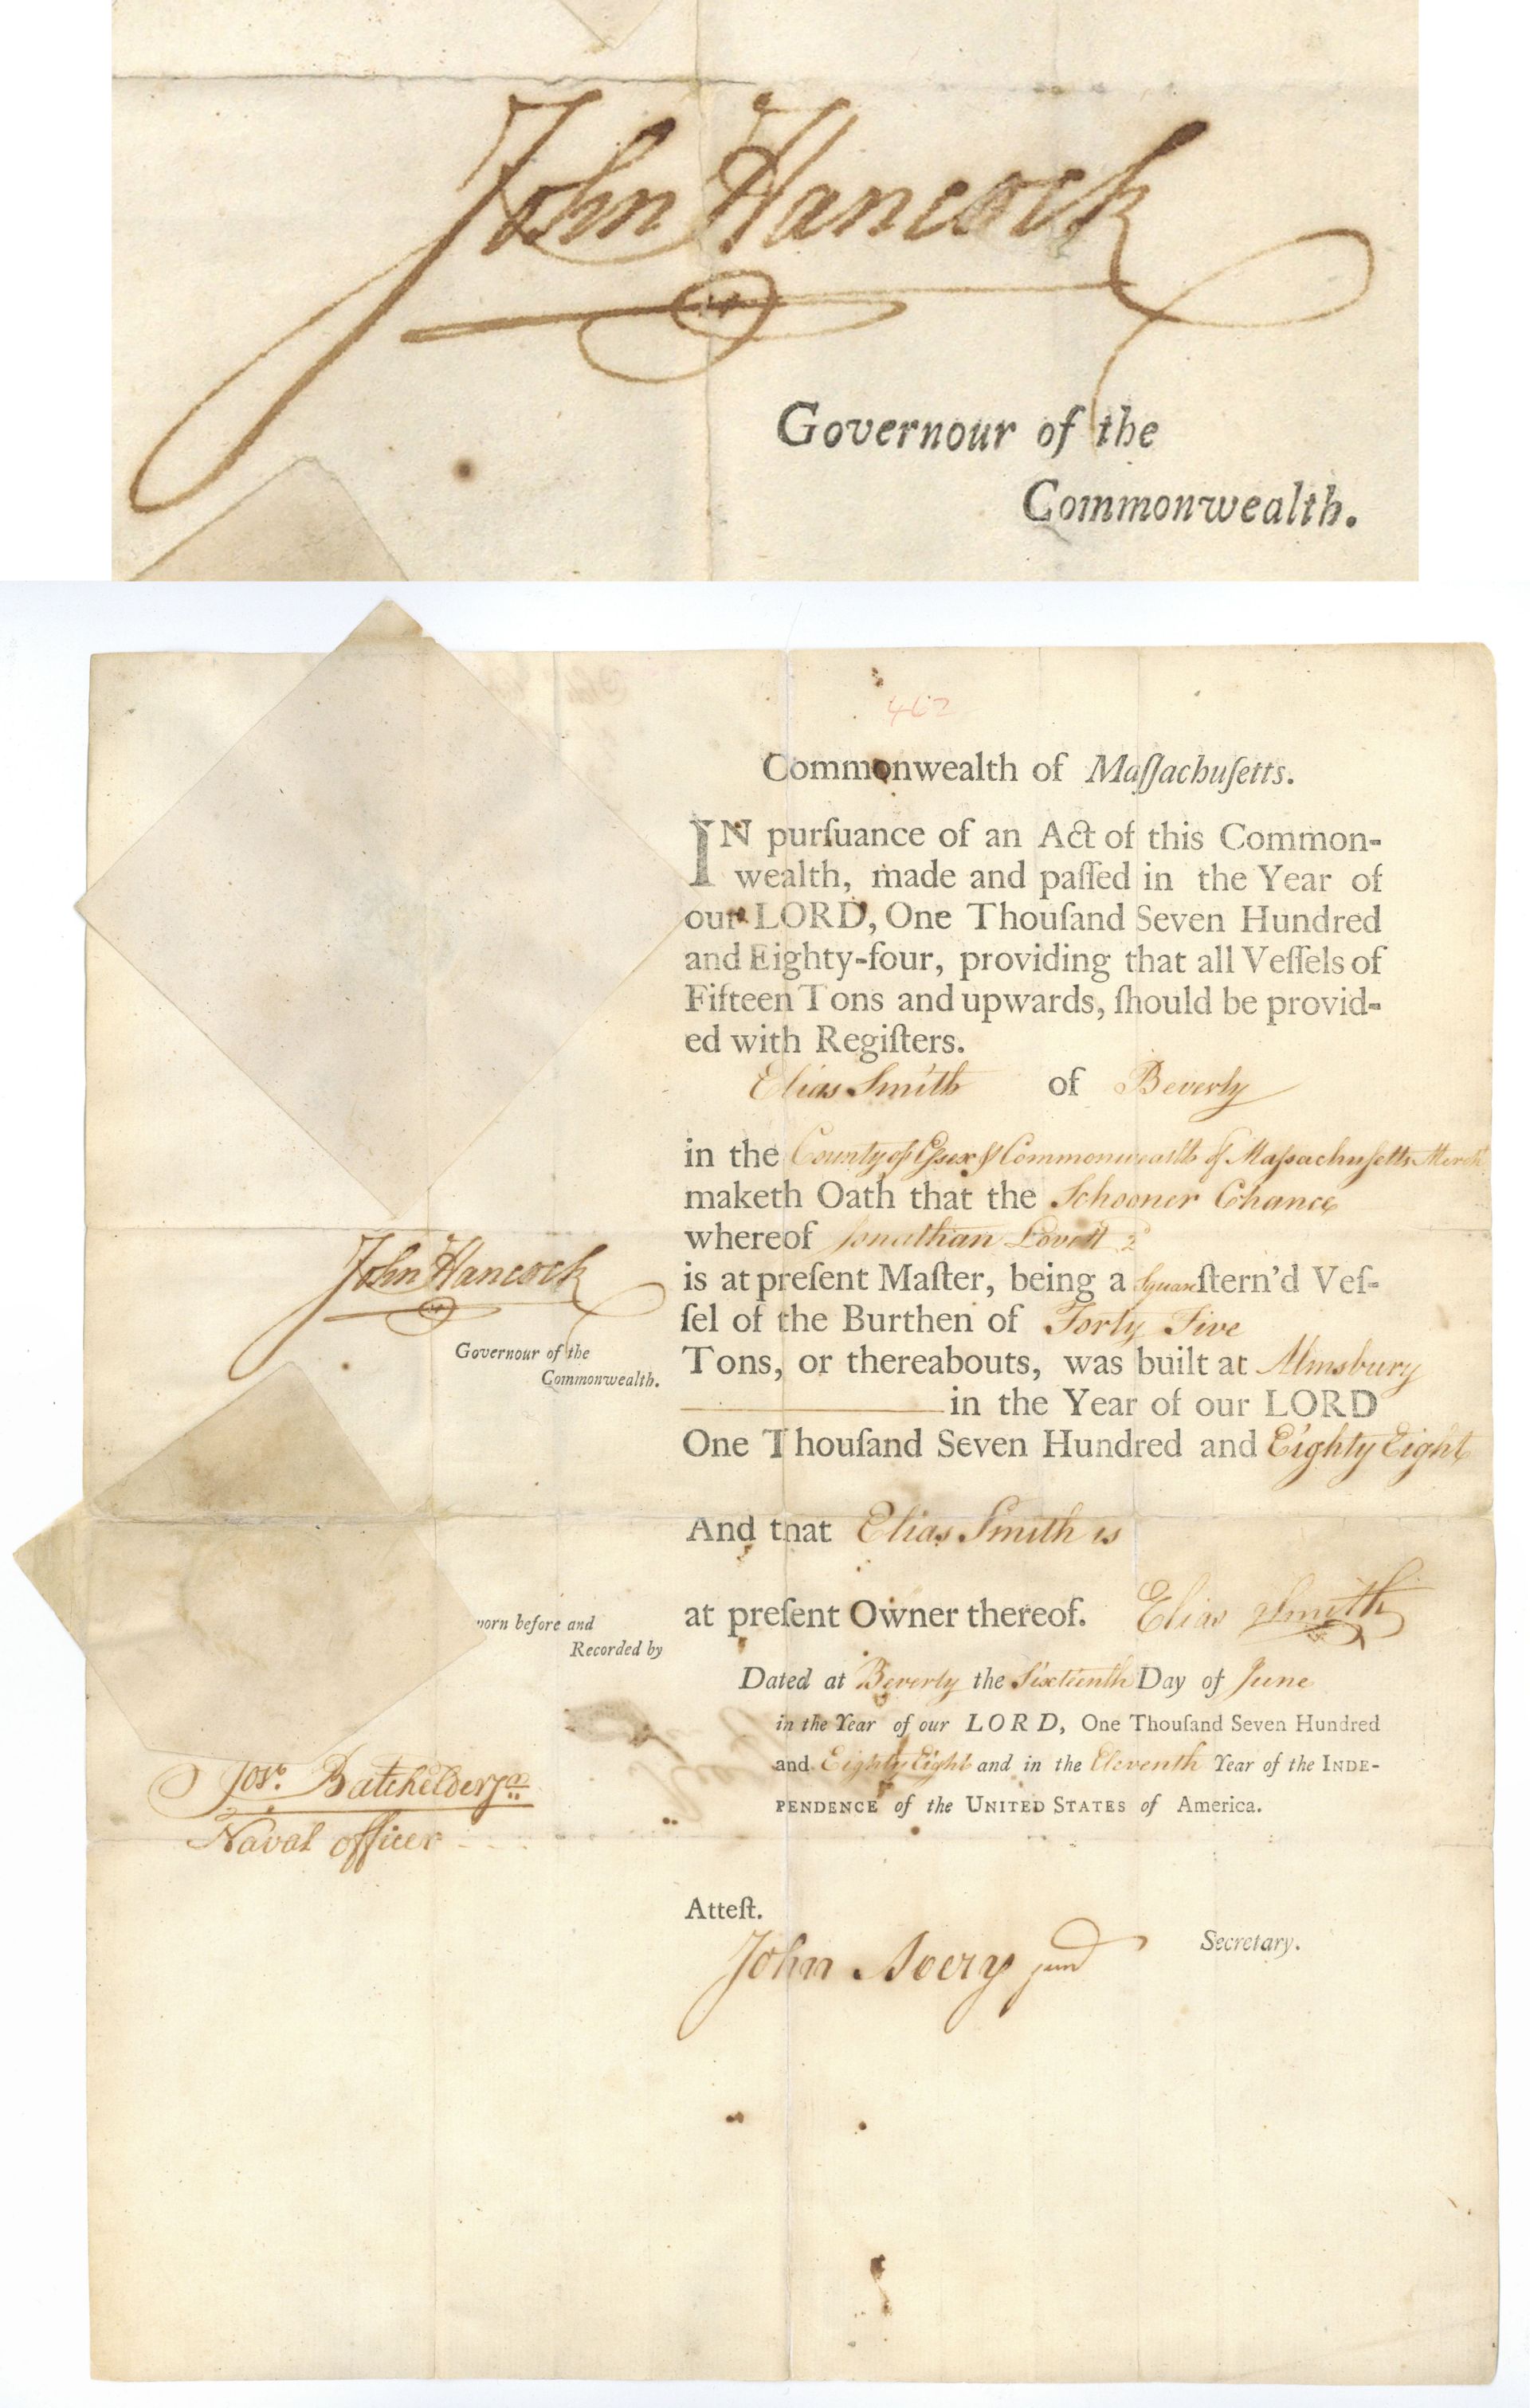 John Hancock
Governour of the
Commonwealth.
462
Commonwealth of Maſſachuſetts.
IN purſuance of an Act of this Common-
wealth, made and paſſed in the Year of
our LORD, One Thouſand Seven Hundred
and Eighty-four, providing that all Veſſels of
Fifteen Tons and upwards, ſhould be provid-
ed with Regiſters.
Elias Smith of Beverly
in the County of Eſsex & Commonwealth of Maſsachuſetts Mercht
maketh Oath that the Schooner Chance
whereof Jonathan Lovett 2d
is at preſent Maſter, being a Square ſtern'd Veſ-
ſel of the Burthen of Forty Five
Tons, or thereabouts, was built at Almsbury
in the Year of our LORD
One Thouſand Seven Hundred and Eighty Eight
And that Elias Smith is
at preſent Owner thereof. Elias Smith
Dated at Beverly the Sixteenth Day of June
in the Year of our LORD, One Thouſand Seven Hundred
and Eighty Eight and in the Eleventh Year of the INDE-
PENDENCE of the UNITED STATES of America.
John Hancock
Governour of the
Commonwealth.
worn before and
Recorded by
Joso. Batchelder Jr
Naval officer
Atteſt.
John Avery junr
Secretary.